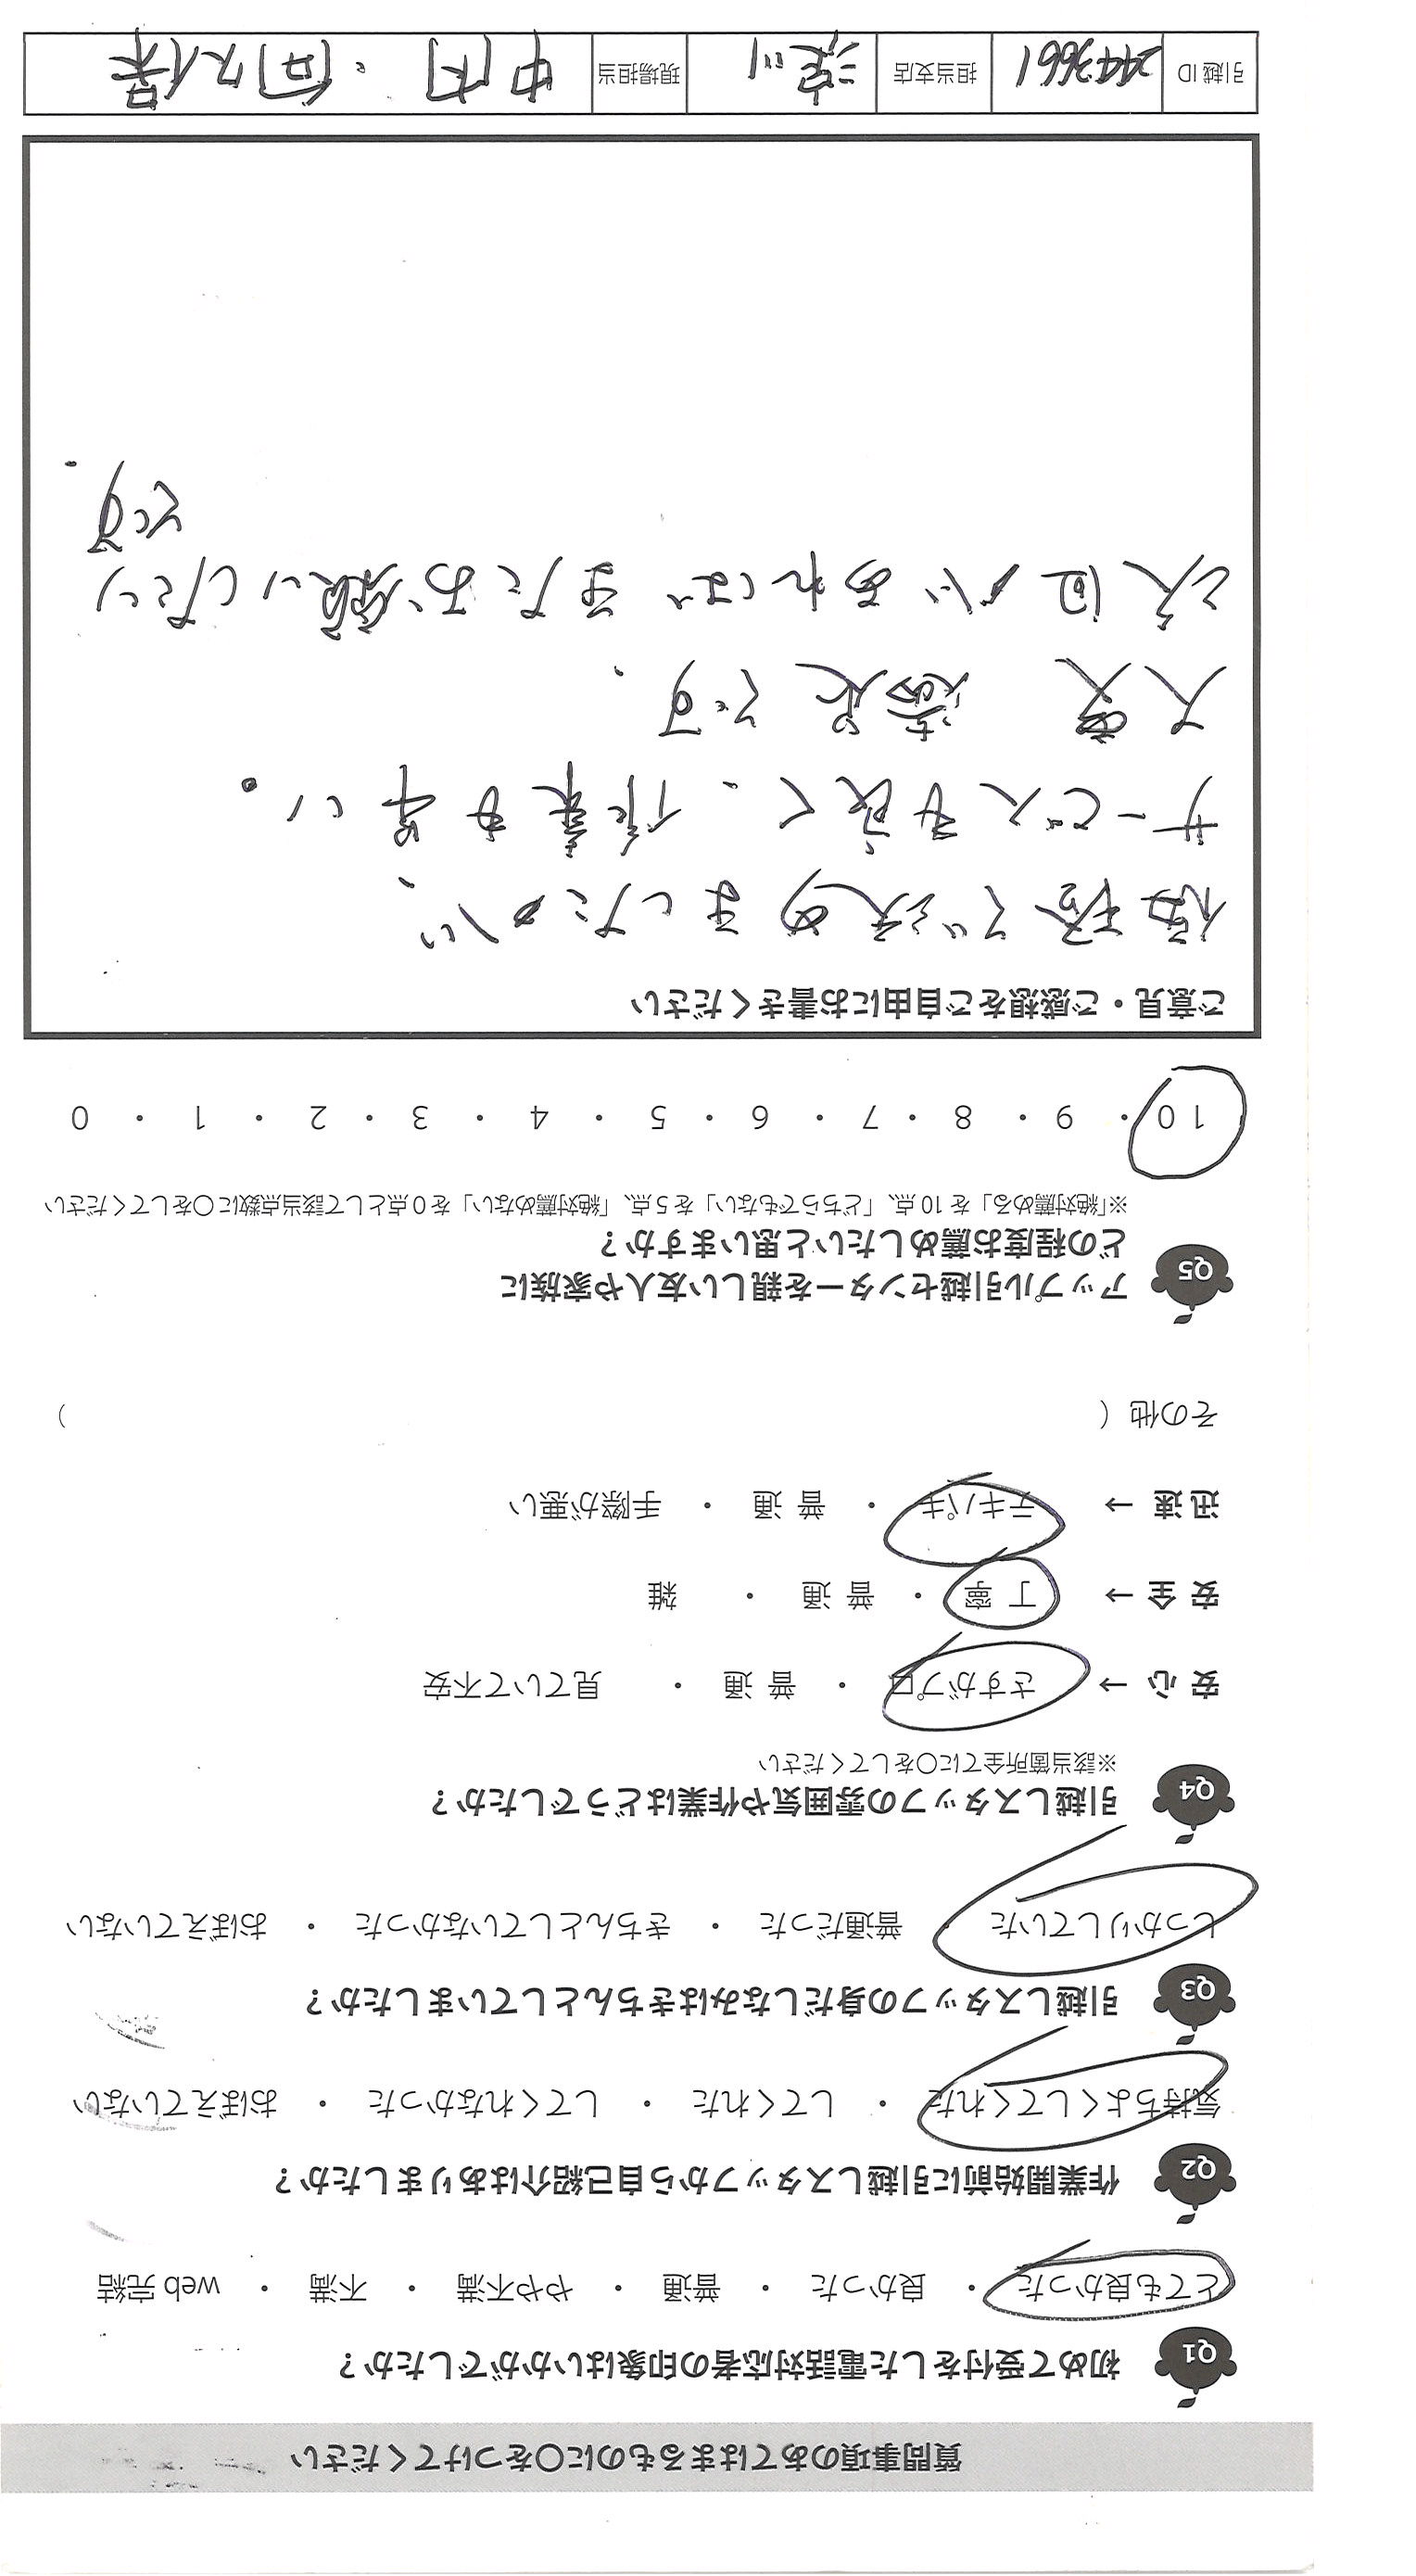 質問事項のあてはまるものに○をつけてください
Q1 初めて受付をした電話対応者の印象はいかがでしたか？
とても良かった ・ 良かった ・ 普通 ・ やや不満 ・ 不満 ・ web 完結
Q2 作業開始前に引越しスタッフから自己紹介はありましたか？
気持ちよくしてくれた ・ してくれた ・ してくれなかった ・ おぼえていない
Q3 引越しスタッフの身だしなみはきちんとしていましたか？
しっかりしていた 普通だった ・ きちんとしていなかった ・ おぼえていない
Q4 引越しスタッフの雰囲気や作業はどうでしたか？
※該当箇所全てに○をしてください
安 心 → さすがプロ ・ 普 通 ・ 見ていて不安
安 全 → 丁 寧 ・ 普 通 ・ 雑
迅 速 → テキパキ ・ 普 通 ・ 手際が悪い
その他（ ）
Q5 アップル引越センターを親しい友人や家族に
どの程度お薦めしたいと思いますか？
※「絶対薦める」を 10 点、「どちらでもない」を 5 点、「絶対薦めない」を 0 点として該当点数に○をしてください
10 ・ 9 ・ 8 ・ 7 ・ 6 ・ 5 ・ 4 ・ 3 ・ 2 ・ 1 ・ 0
ご意見・ご感想をご自由にお書きください
値段で決めましたが、
サービスも良く、作業も早い。
大変 満足です.
次回があればまたお願いしたい
です.
引越 ID 2443661 担当支店 淀川 現場担当 中内・向久保